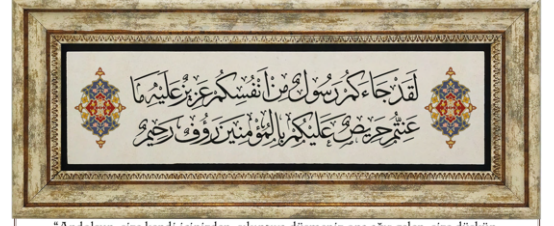 لَقَدْ جَاءَكُمْ رَسُولٌ مِنْ أَنْفُسِكُمْ عَزِيزٌ عَلَيْهِ مَا
عَنِتُّمْ حَرِيصٌ عَلَيْكُمْ بِالْمُؤْمِنِينَ رَؤُوفٌ رَحِيمٌ